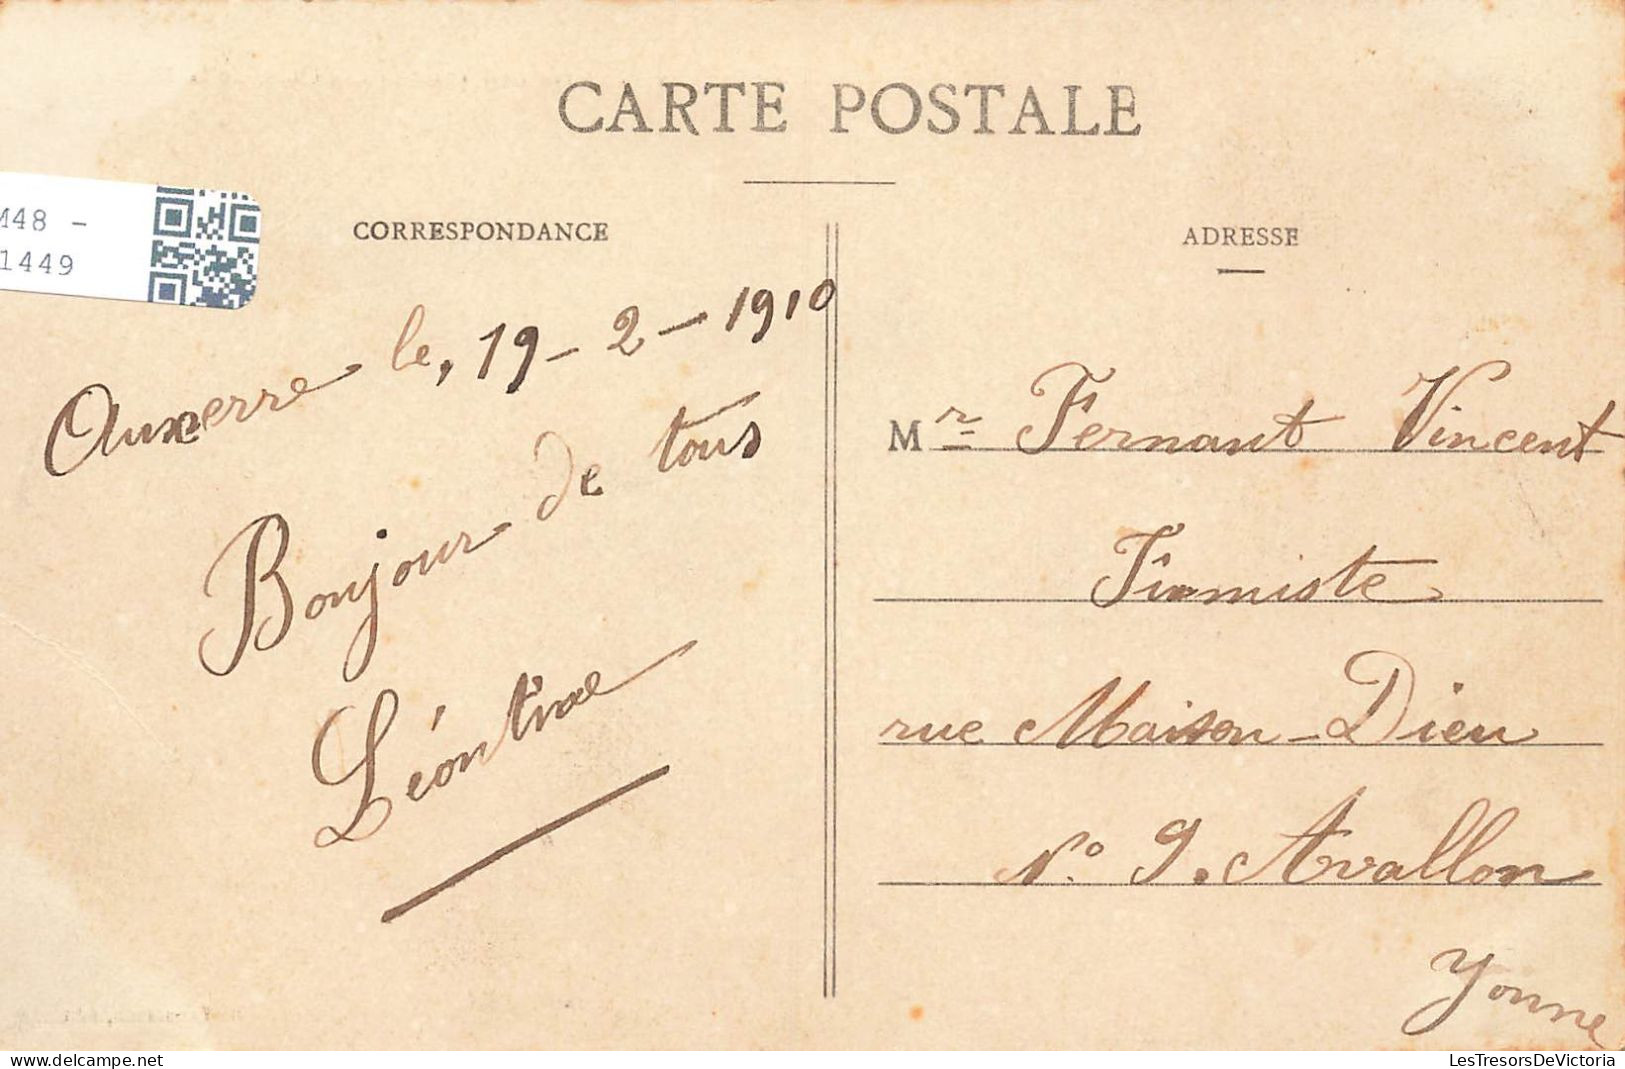 CARTE POSTALE
M48 -
1449
CORRESPONDANCE
Auxerre le, 19-2-1910
Bonjour de tous
Léontine
ADRESSE
Mr Fernant Vincent
rue Maison-Dieu
N° 9. Avallon
Yonne
LesTresorsDeVictoria